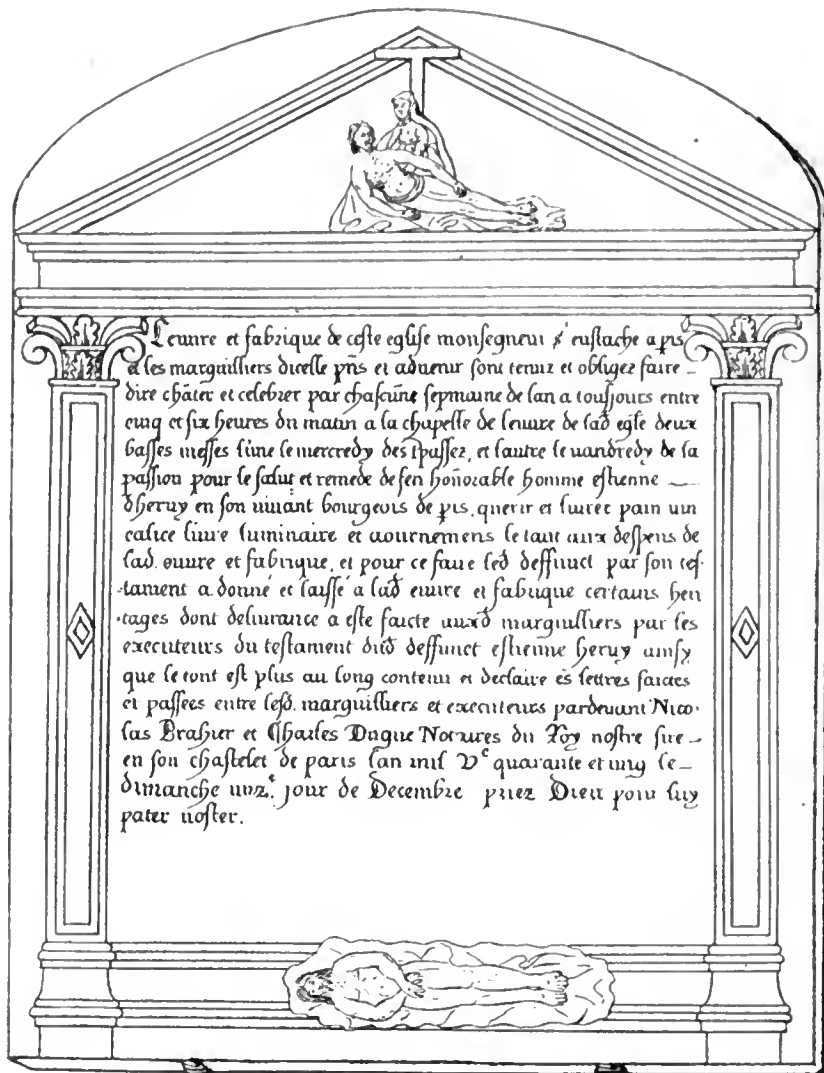 Leuvre et fabrique de ceste eglise monsegneur s' eustache a pis
& les marguilliers dicelle pns et advenir sont tenuz et obligez faire
dire chāter et celebrer par chascūne sepmaine de lan a tousjours entre
cinq et six heures du matin a la chapelle de leuvre de lad egle deux
basses messes lūne le mercredy des tpassez, et lautre le vandredy de la
passion pour le salut et remede de feu honnorable homme estienne
dhervy en son vivant bourgeois de pis, querir et livrer pain vin
calice livre luminaire et aournemens le tout aux despens de
lad. ouvre et fabrique, et pour ce faire led deffunct par son tes-
tament a donné et laissé a lad euvre et fabrique certains heri
tages dont delivrance a este faicte auxd marguilliers par les
executeurs du testament dud deffunct estienne hervy ainsy
que le tout est plus au long contenu et declaire es lettres faictes
et passees entre lesd. marguilliers et executeurs pardevant Nico-
las Brahier et Charles Dugue Notaires du Roy nostre sire
en son chastelet de paris lan mil Vc quarante et ung le
dimanche unze. jour de Decembre priez Dieu pour luy
pater noster.